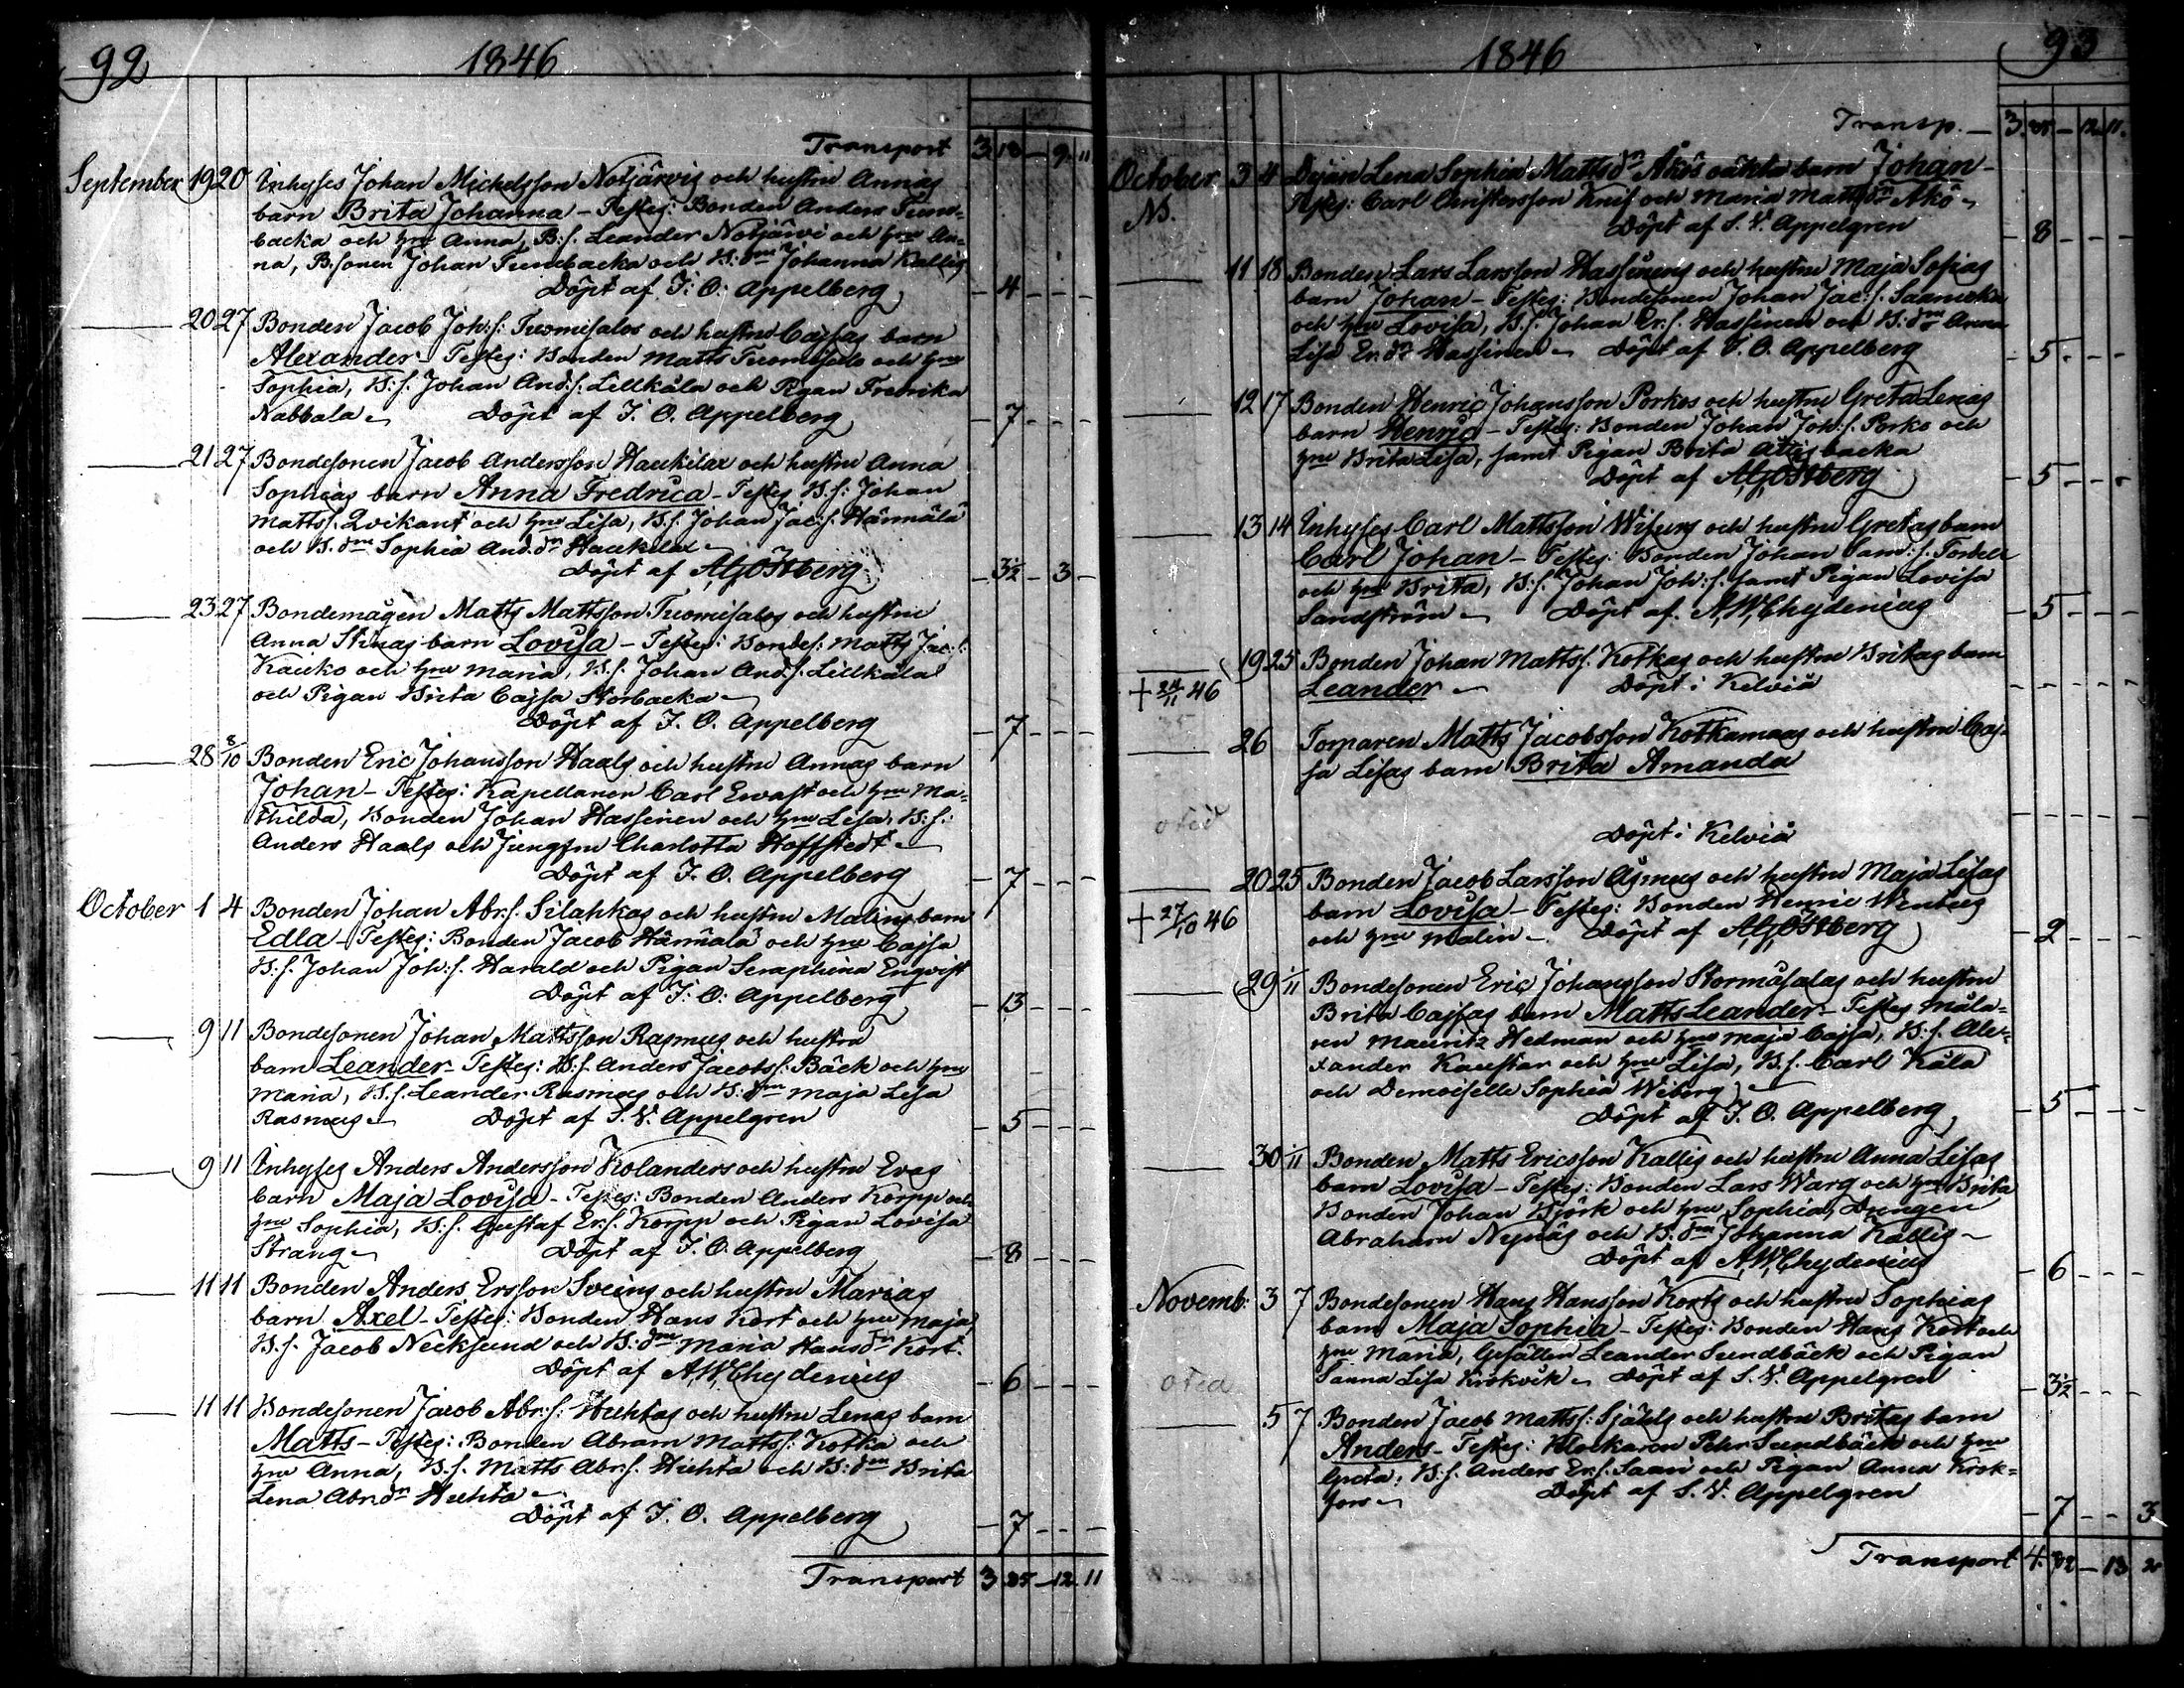 92
1846
Transport 3 18 – 9. 11
September 19 20 Inhyses Johan Michelsson Notjärvis och hustru Annas
barn Brita Johanna – Testes: Bonden Anders Tune-
backa och hru Anna, B:s. Leander Notjärvi och hru An-
na, B.sonen Johan Tunebacka och B:dtr Johanna Kallis
Döpt af J. O. Appelberg – 4 – – –
20 27 Bonden Jacob Joh:s. Tuomisalos och hustru Cajsas barn
Alexander – Testes: Bonden Matts Tuomisalo och hru
Sophia, B:s. Johan And:s. Lillkåla och Pigan Fredrika
Nabbala – Döpt af J. O. Appelberg – 7 – – –
21 27 Bondesonen Jacob Andersson Haukilax och hustru Anna
Sophias barn Anna Fredrica – Testes B.s: Johan
Mattss. Qvikant och hru Lisa, B.s. Johan Jac:s. Hännälä
och B.dtr Sophia And.dr Haukilax –
Döpt af A,G,Östberg – 3½ – 3 –
23 27 Bondemågen Matts Mattsson Tuomisalos och hustru
Anna Stinas barn Lovisa – Testes: Bondes: Matts Jac:s.
Kauko och hru Maria, B.s. Johan And:s. Lillkåla
och Pigan Brita Cajsa Storbacka –
Döpt af J. O. Appelberg – 7 – – –
28 8/10 Bonden Eric Johansson Haals och hustru Annas barn
Johan – Testes: Kapellanen Carl Ervast och hru Ma-
thilda, Bonden Johan Hassinen och hru Lisa, B:s.
Anders Haals och Jungfru Charlotta Hoffstedt –
Döpt af J. O. Appelberg – 7 – – –
October 1 4 Bonden Johan Abr:s. Silahkas och hustru Malins barn
Edla – Testes: Bonden Jacob Hännälä och hru Cajsa
B.s. Johan Joh:s. Harald och Pigan Seraphina Enqvist
Döpt af J: O: Appelberg – 13 – – –
9 11 Bondesonen Johan Mattsson Rasmus och hustru
barn Leander – Testes: B:s. Anders Jacobss: Bäck och hru
Maria, B.s. Leander Rasmus och B:dtr Maja Lisa
Rasmus – Döpt af S. V. Appelgren – 5 – – –
9 11 Inhyses Anders Andersson Kolanders och hustru Evas
barn Maja Lovisa – Testes: Bonden Anders Korpp och
hru Sophia, B:s. Gustaf Er:s. Korpp och Pigan Lovisa
Strang – Döpt af J. O. Appelberg – 8 – – –
11 11 Bonden Anders Ersson Sveins och hustru Marias
barn Axel – Testes: Bonden Hans Kort och hru Maja,
B.s. Jacob Necksund och B:dtr Maria Hansdr Kort.
Döpt af A,W,Chydenius – 6 – – –
11 11 Bondesonen Jacob Abr:s: Huhtas och hustru Lenas barn
Matts – Testes: Bonden Abram Mattss: Kotka och
hru Anna, B.s. Matts Abr.s. Huhta och B:dtr Brita
Lena Abr.dr Huhta –
Döpt af J. O. Appelberg – 7 – – –
Transport 3 25 – 12 11
93
1846
Transp. – 3. 25 – 12 11.
October 3 4 Dejan Lena Sophia Mattsdr Åkös oäkta barn Johan –
Testes: Carl Christersson Knif och Maria Mattsdr Åkö –
Döpt af S. V. Appelgren – 8 – – –
11 18 Bonden Lars Larsson Hassinens och hustru Maja Sofias
barn Johan – Testes: Bondesonen Johan Jac:s. Saamoka
och hru Lovisa, B.s. Johan Er.s. Hassinen och B:dtr Anna
Lisa Er.dr Hassinen – Döpt af J. O. Appelberg – 5 – – –
12 17 Bonden Henric Johansson Porkos och hustru Greta Lenas
barn Henric – Testes: Bonden Johan Joh:s. Porko och
hru Brita Lisa, samt Pigan Brita Attisbacka
Döpt af A,G,Östberg – 5 – – –
13 14 Inhyses Carl Mattsson Wisurs och hustru Gretas barn
Carl Johan – Testes: Bonden Johan Sam:s. Torbela
och hru Brita, B:s. Johan Joh:s. samt Pigan Lovisa
Sandström – Döpt af A,W,Chydenius – 5 – – –
19 25 Bonden Johan Mattss. Kotkas och hustru Britas barn
+ 24/11 46 Leander – Döpt i Kelviå – – – – –
26 Torparen Matts Jacobsson Kotkamaas och hustru Caj-
sa Lisas barn Brita Amanda
Döpt i Kelviå – – – – –
20 25 Bonden Jacob Larsson Åsmus och hustru Maja Lisas
+ 27/10 46 barn Lovisa – Testes: Bonden Henric
och hru Malin – Döpt af A,G,Östberg – 2 – – –
29 1/11 Bondesonen Eric Johansson Stormåsalas och hustru
Brita Cajsas barn Matts Leander – Testes Måla-
ren Mauritz Hedman och hru Maja Cajsa, B:s. Ale-
xander Kaustar och hru Lisa, B.s. Carl Kåla
och Demoiselle Sophia Wiberg –
Döpt af J. O. Appelberg – 5 – – –
30 1/11 Bonden Matts Ericsson Kallis och hustru Anna Lisas
barn Lovisa – Testes: Bonden Lars Warg och hru Brita
Bonden Johan Björk och hru Sophia, Drengen
Abraham Nynäs och B.dtr Johanna Kallis –
Döpt af A,W,Chydenius – 6 – – –
Novemb: 3 7 Bondesonen Hans Hansson Korts och hustru Sophias
barn Maja Sophia – Testes: Bonden Hans Kort och
hru Maria, Gesällen Leander Sundbäck och Pigan
Sanna Lisa Krokvik – Döpt af S. V. Appelgren – 3½ – – –
5 7 Bonden Jacob Mattss: Själls och hustru Britas barn
Anders – Testes: Klockaren Pehr Sundbäck och hru
Greta, B:s. Anders Er.s. Saari och Pigan Anna Krok-
fors – Döpt af S. V. Appelgren – 7 – – 3
Transport 4. 32 – 13 2